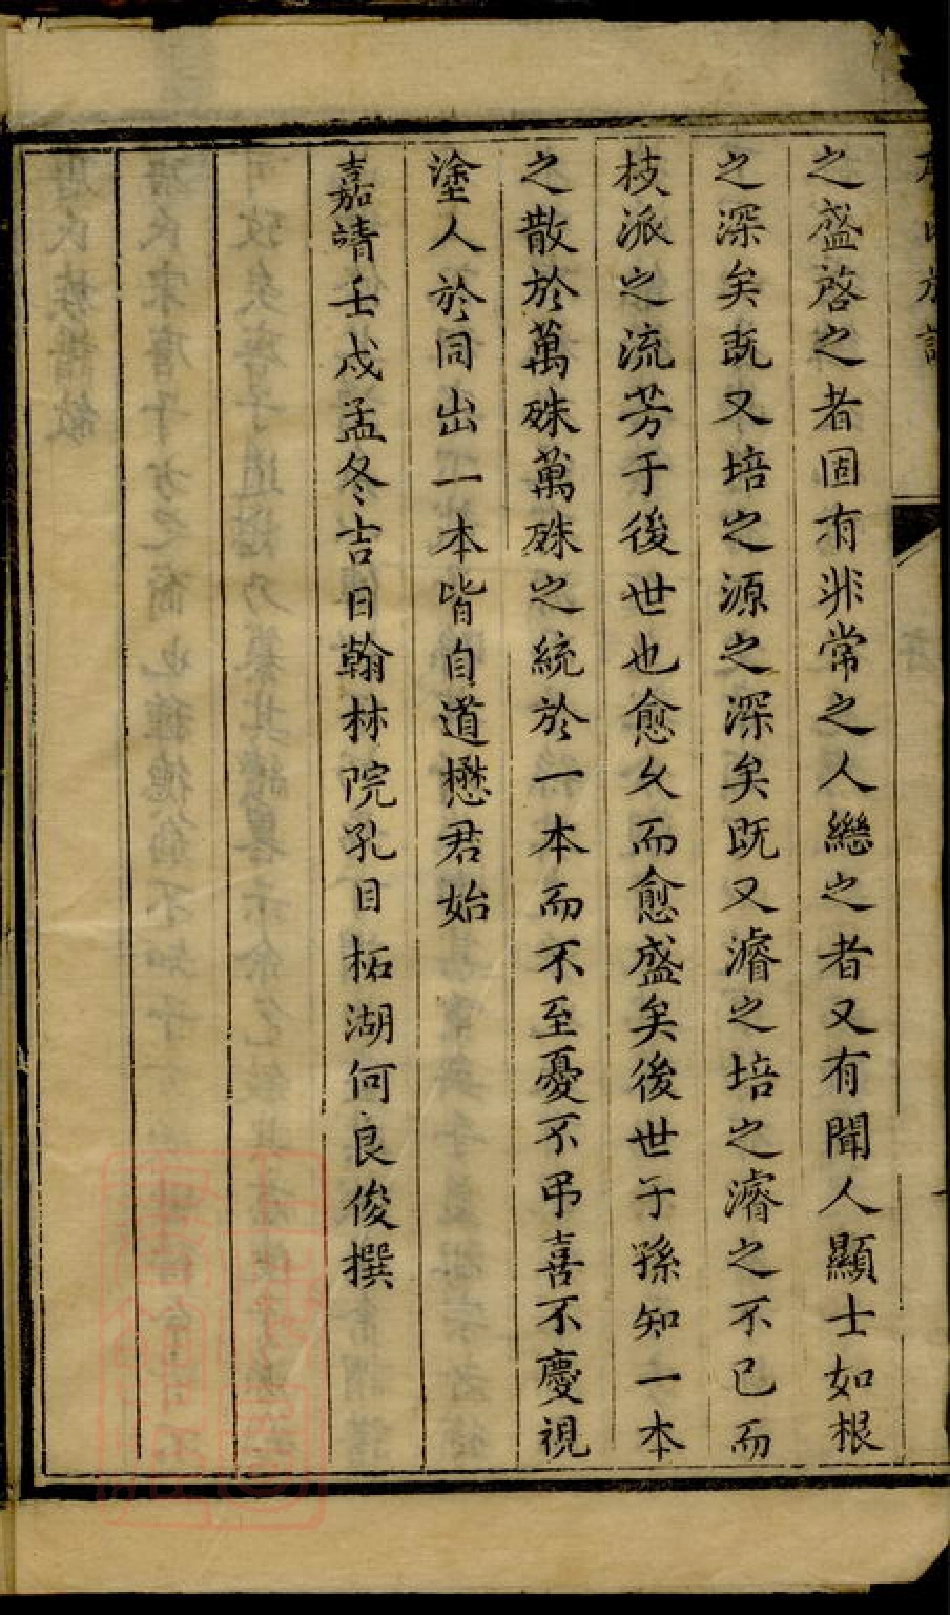 之盛啓之者固有非常之人繼之者又有聞人顯士如根
之深矣既又培之源之深矣既又濬之培之濬之不已而
枝派之流芳于後世也愈久而愈盛矣後世子孫知一本
之散於萬殊萬殊之統於一本而不至憂不弔喜不慶視
塗人於同出一本皆自道懋君始
嘉靖壬戌孟冬吉日翰林院孔目柘湖何良俊撰